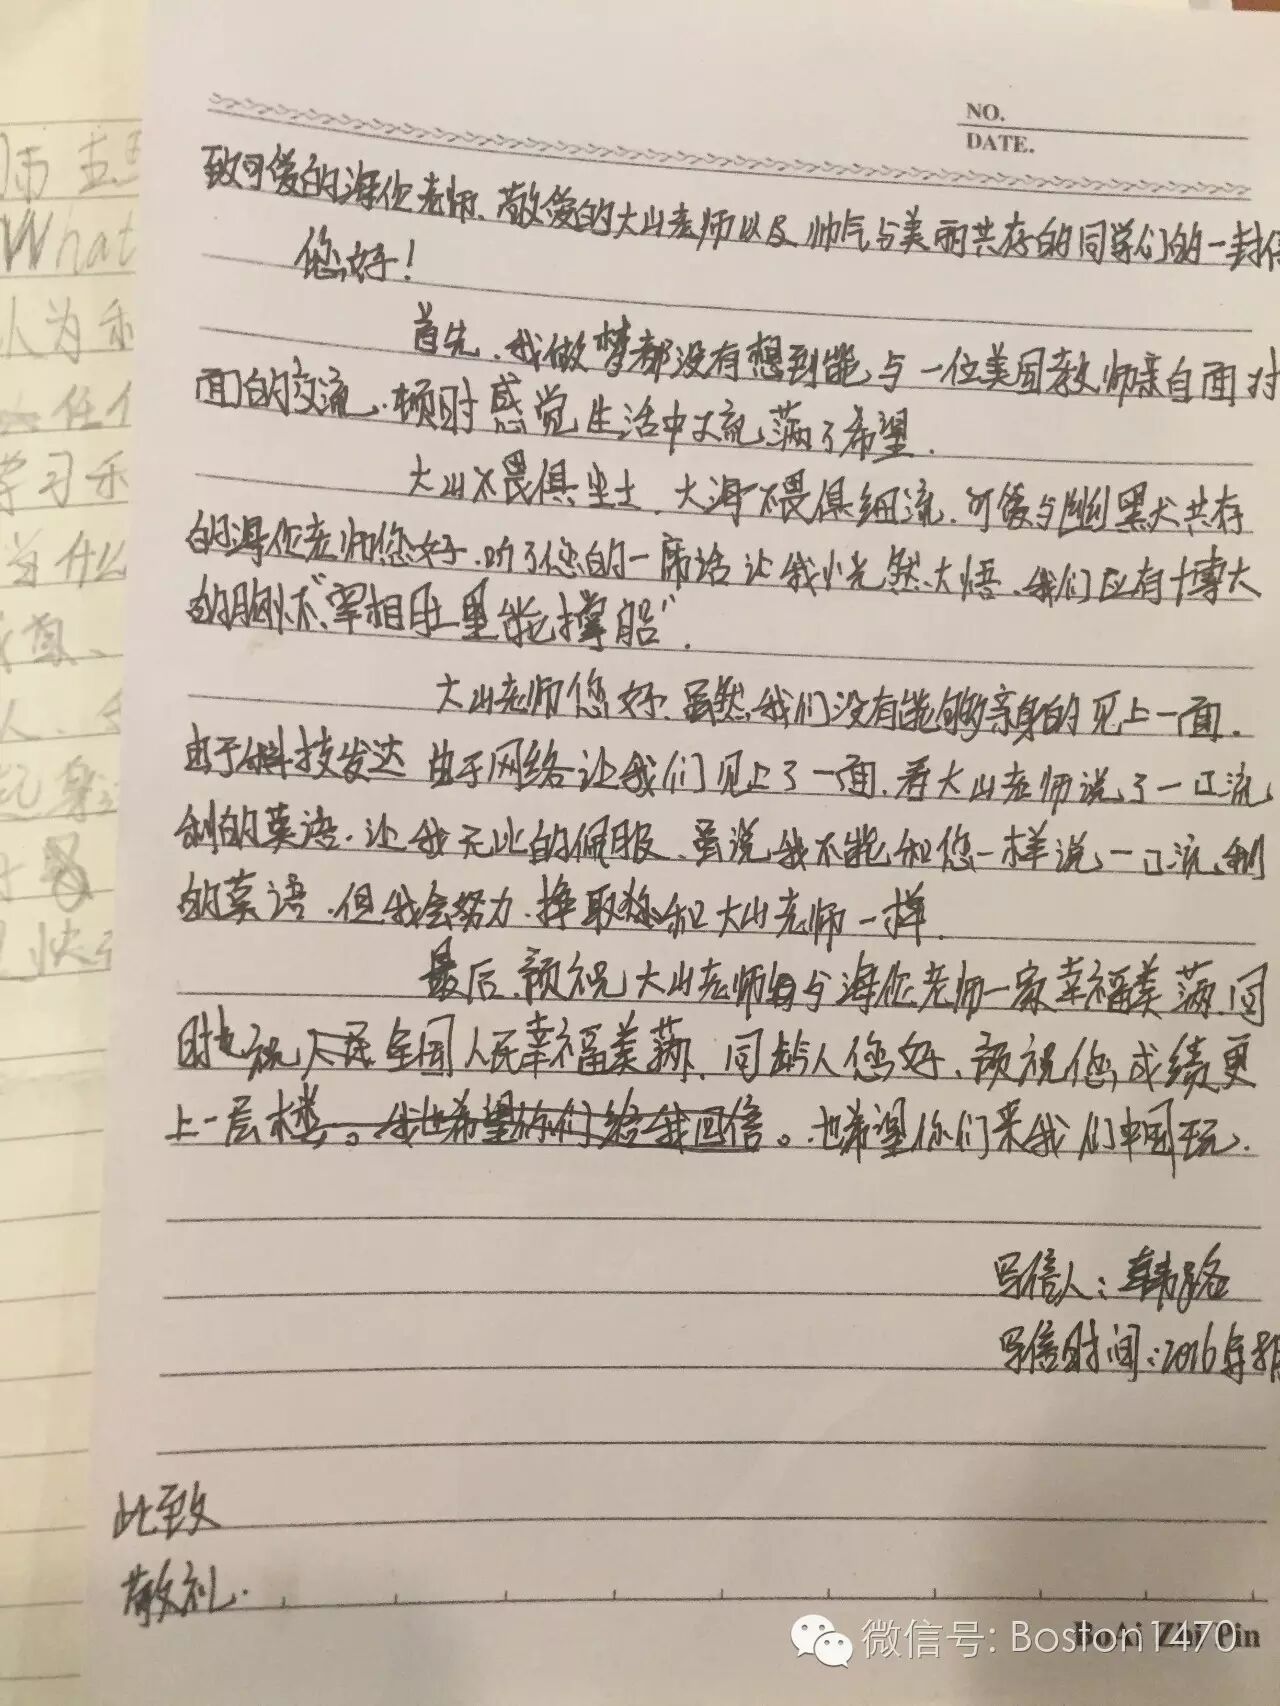 NO.
DATE.
致可爱的海伦老师、敬爱的大山老师以及帅气与美丽共存的同学们的一封信
您好！
首先、我做梦都没有想到能与一位美国教师亲自面对
面的交流、顿时感觉生活中又充满了希望.
大山不畏俱尘土、大海不畏俱细流、可爱与幽默共存
的海伦老师您好、听了您的一席话让我恍然大悟、我们应有博大
的胸怀“宰相肚里能撑船”.
大山老师您好、虽然我们没有能够亲身的见上一面.
由于科技发达 由于网络让我们见上了一面、看大山老师说了一口流
利的英语、让我无比的佩服、虽说我不能和您一样说一口流利
的英语、但我会努力、挣取和大山老师一样.
最后、预祝大山老师与海伦老师一家幸福美满、同
时也祝人民全国人民幸福美满、同龄人您好、预祝您成绩更
上一层楼。我也希望你们给我回信。也希望你们来我们中国玩.
写信人：韩路
写信时间：2016年
此致
敬礼.
BoAi Zhi Pin
微信号: Boston1470
What
人为
学习
什么